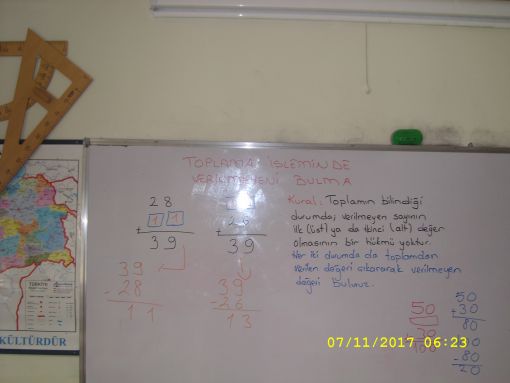 TOPLAMA İŞLEMİNDE
VERİLMEYENİ BULMA
28
11
+
39
39
- 28
11
+ 26
39
39
- 26
13
Kural: Toplamın bilindiği
durumda; verilmeyen sayının
ilk (üst) ya da ikinci (alt) değer
olmasının bir hükmü yoktur.
Her iki durumda da toplamdan
verilen değeri çıkararak verilmeyen
değeri buluruz.
50
+ 30
50
+ 30
80
- 80
20
TÜRKİYE
KÜLTÜRDÜR
07/11/2017 06:23